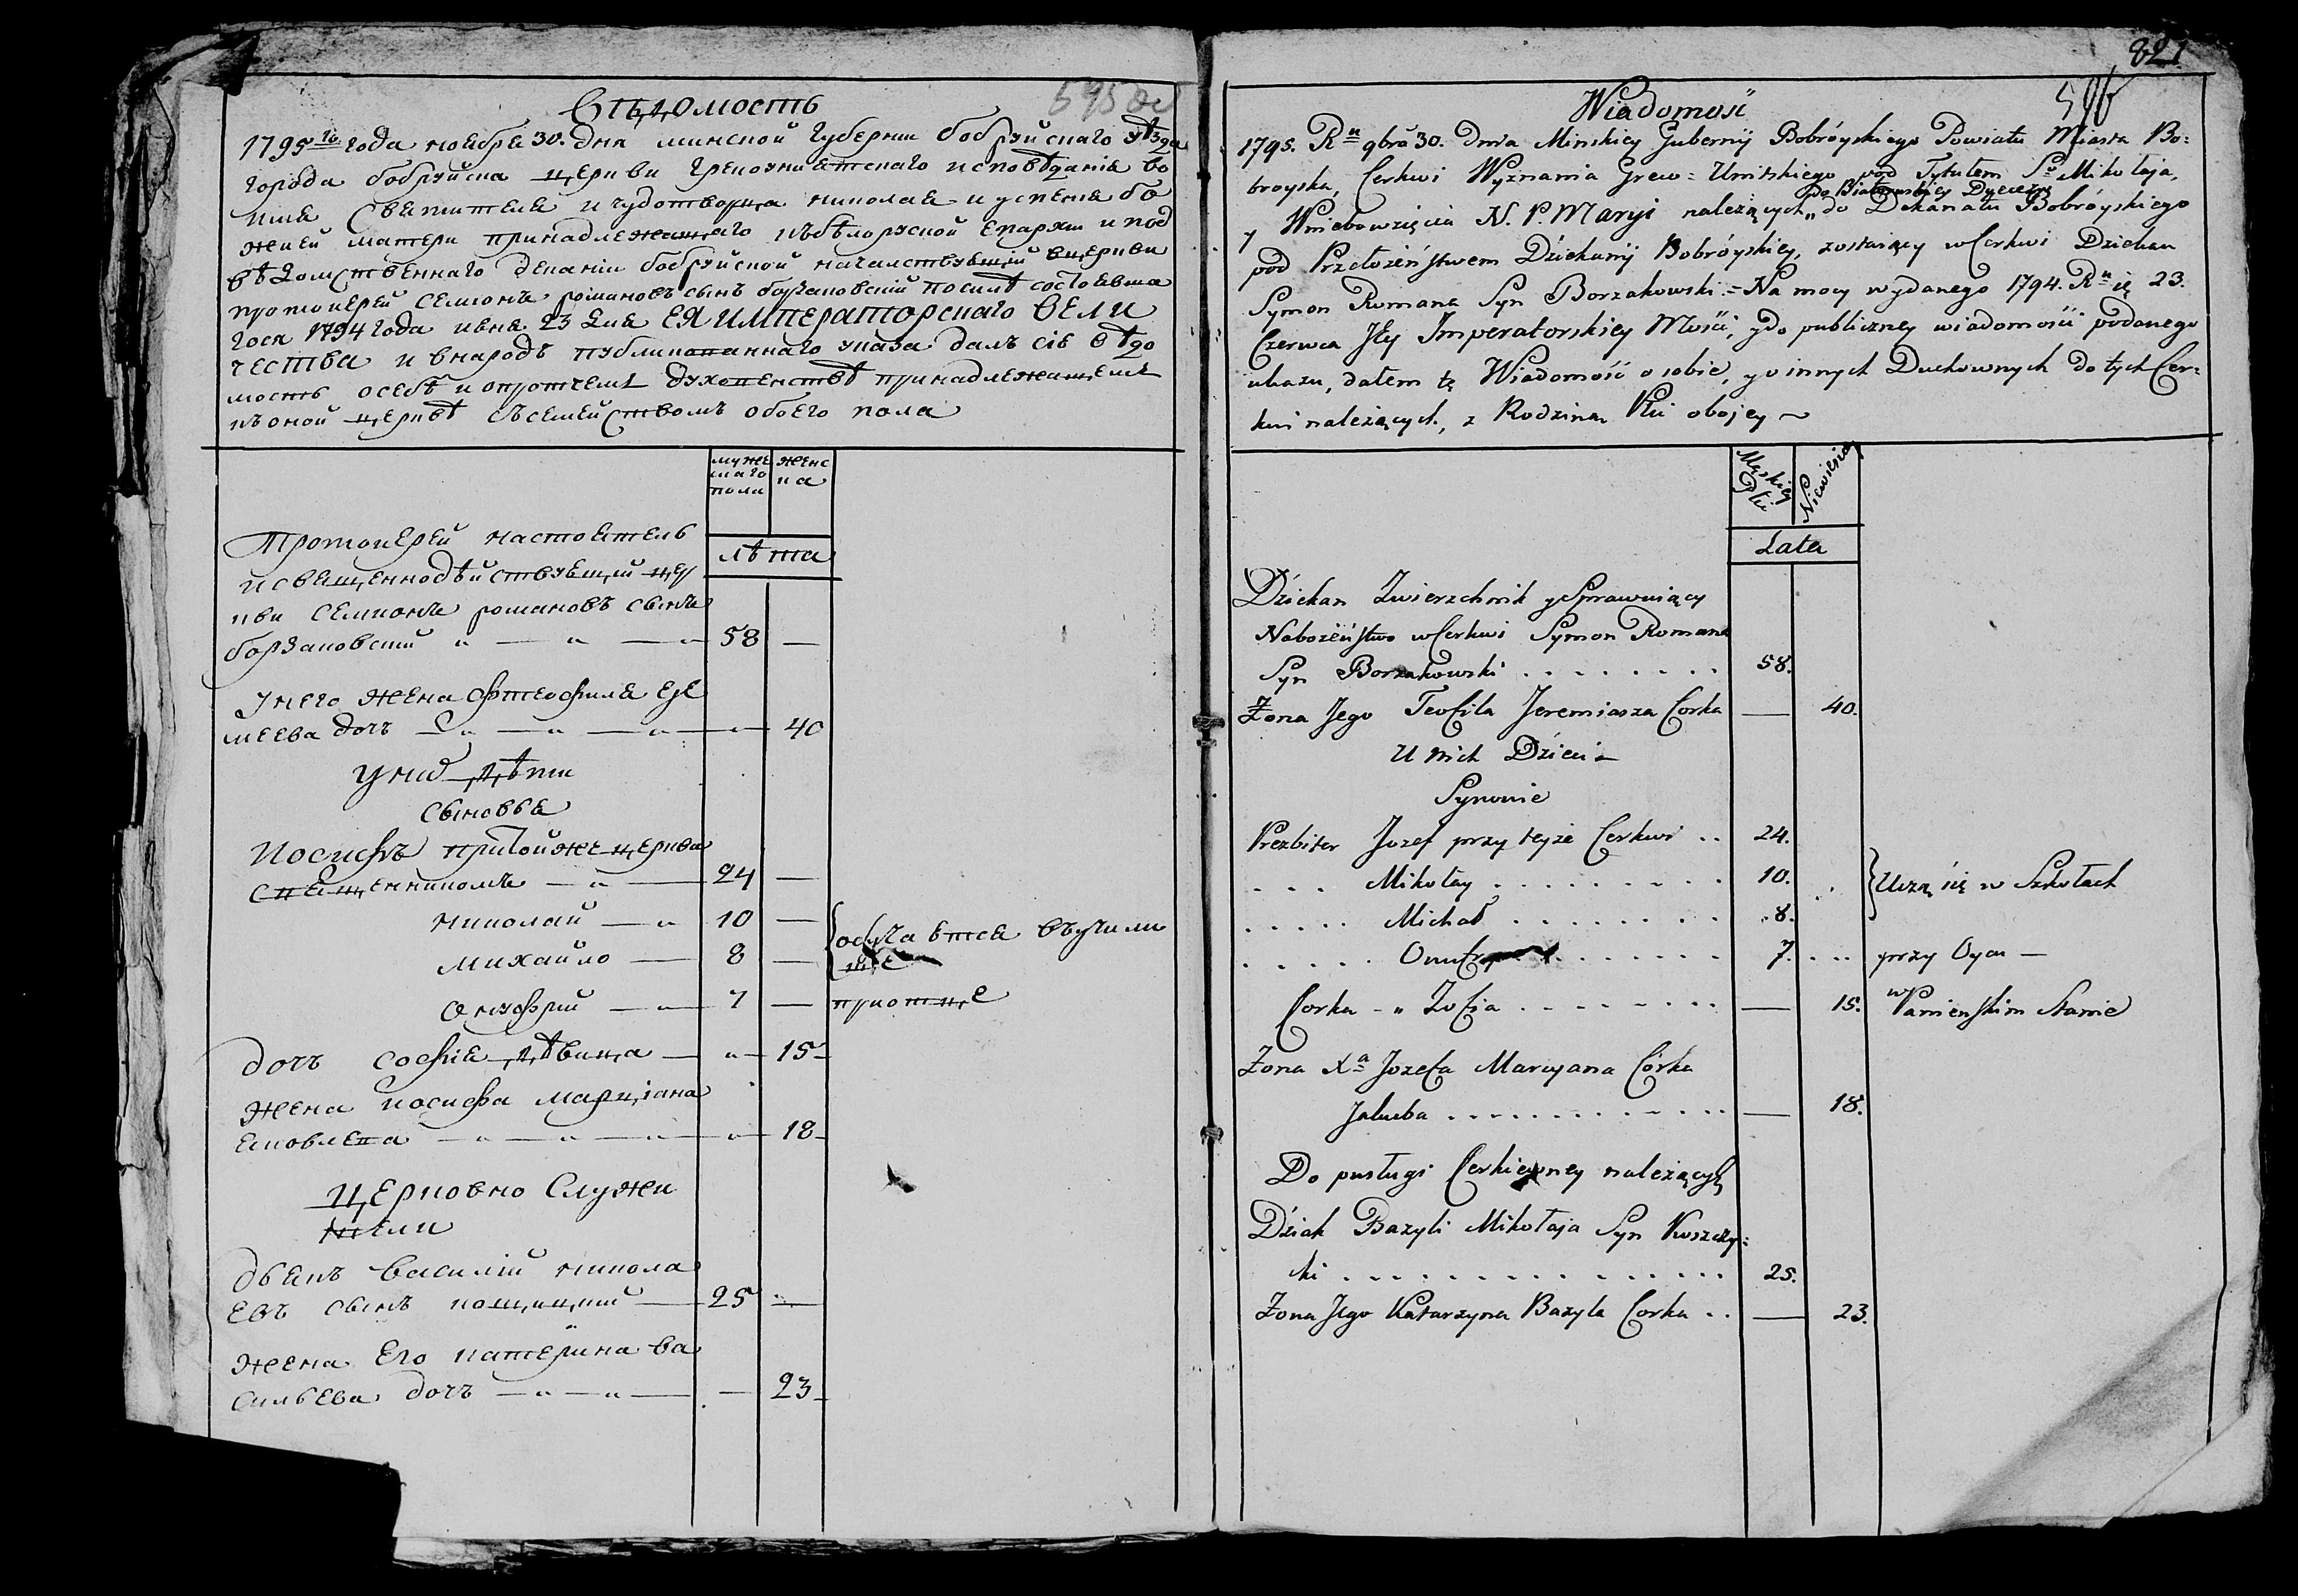 Вѣдомость
595 об
1795 го года ноября 30. дня минской губернии бобруйского уѣзда
города бобруйска церкви грекоуниатскаго исповѣданія во
имя святителя и чудотворца николая и успения бо
жией матери принадлежащаго къ бѣлоруской епархии и под
вѣдомственнаго деканіи бобруйской началствующий в церкви
протоиерей семионъ романовъ сынъ борзаковский посилѣ состоявша
гося 1794 года июня 23 дня ЕЯ ИМПераторскаго ВЕЛИ
чества и в народъ публикованнаго указа далъ сіе вѣдо
мость о себѣ и опротчемъ духовенствѣ принадлежащемъ
къ оной церквѣ съ семейством обоего пола
мужескаго пола
женска
лѣта
Протоиерей настоятель
и священнодѣйствующий цер
кви семионъ романовъ сынъ
борзаковский 58 —
у него жена фтеофиля ере
меева дочъ — 40
у них дѣти
сыновья
Иосифъ при той же церкви
священникомъ — 24 —
николай — 10 —
михайло — 8 — обучаются въ учили
ще
онуфрий — 7 — при отце
дочъ софія дѣвица — 15
жена иосифа марціана
яковлева — 18
Церковно служи
тели
дьякъ василий никола
евъ сынъ кощицкий — 25 —
жена его катерина ва
сильева дочъ — 23
821
596
Wiadomość
1795. Ru 9bra 30. Dnia Minskiey Gubernij Bobróyskiego Powiatu Miasta Bo=
broyska, Cerkwi Wyznania Greco=Unitskiego pod Tytułem So Mikołaja,
do Białoruskiey Dyecezyi
y Wniebowzięcia N. P. Maryi należących „ do Dekanatu Bobróyskiego
pod Przełożeństwem Dziekanij Bobróyskiey, zostaiący w Cerkwi Dziekan
Symon Romana Syn Borzakowski = Na mocy wydanego 1794. Ru 23.
Czerwca Jey Imperatorskiey Mości, y do publiczney wiadomości podanego
ukazu, dałem tę Wiadomość o sobie, y o innych Duchownych do tych Cer=
kwi należących, z Rodziną Płci obojey ~
Męskiey Płci
Niewieścia
Lata
Dziekan Zwierzchnik y Sprawuiący
Nabożeństwo w Cerkwi Symon Romana
Syn Borzakowski . . . . . . . . 58.
Żona Jego Teofila Jeremiasza Corka — 40.
U nich Dzieci
Synowie
Prezbiter Jozef przy teyże Cerkwi . . 24.
. . . Mikołay . . . . . . . . . 10. } Uczą się w Szkołach
. . . . . Michał . . . . . . . . 8.
. . . . . Onufry . . . . . . . 7. . . . przy Oycu —
Corka - „ Zofia . . . . . . . . — 15. w Panienskim Stanie
Żona Xa Jozefa Marcyana Córka
Jakuba . . . . . . . . . . . . — 18.
Do posługi Cerkiewney należących
Dziak Bazyli Mikołaja Syn Koszczyc=
ki . . . . . . . . . . . . . . . 25.
Żona Jego Katarzyna Bazyla Corka . . — 23.